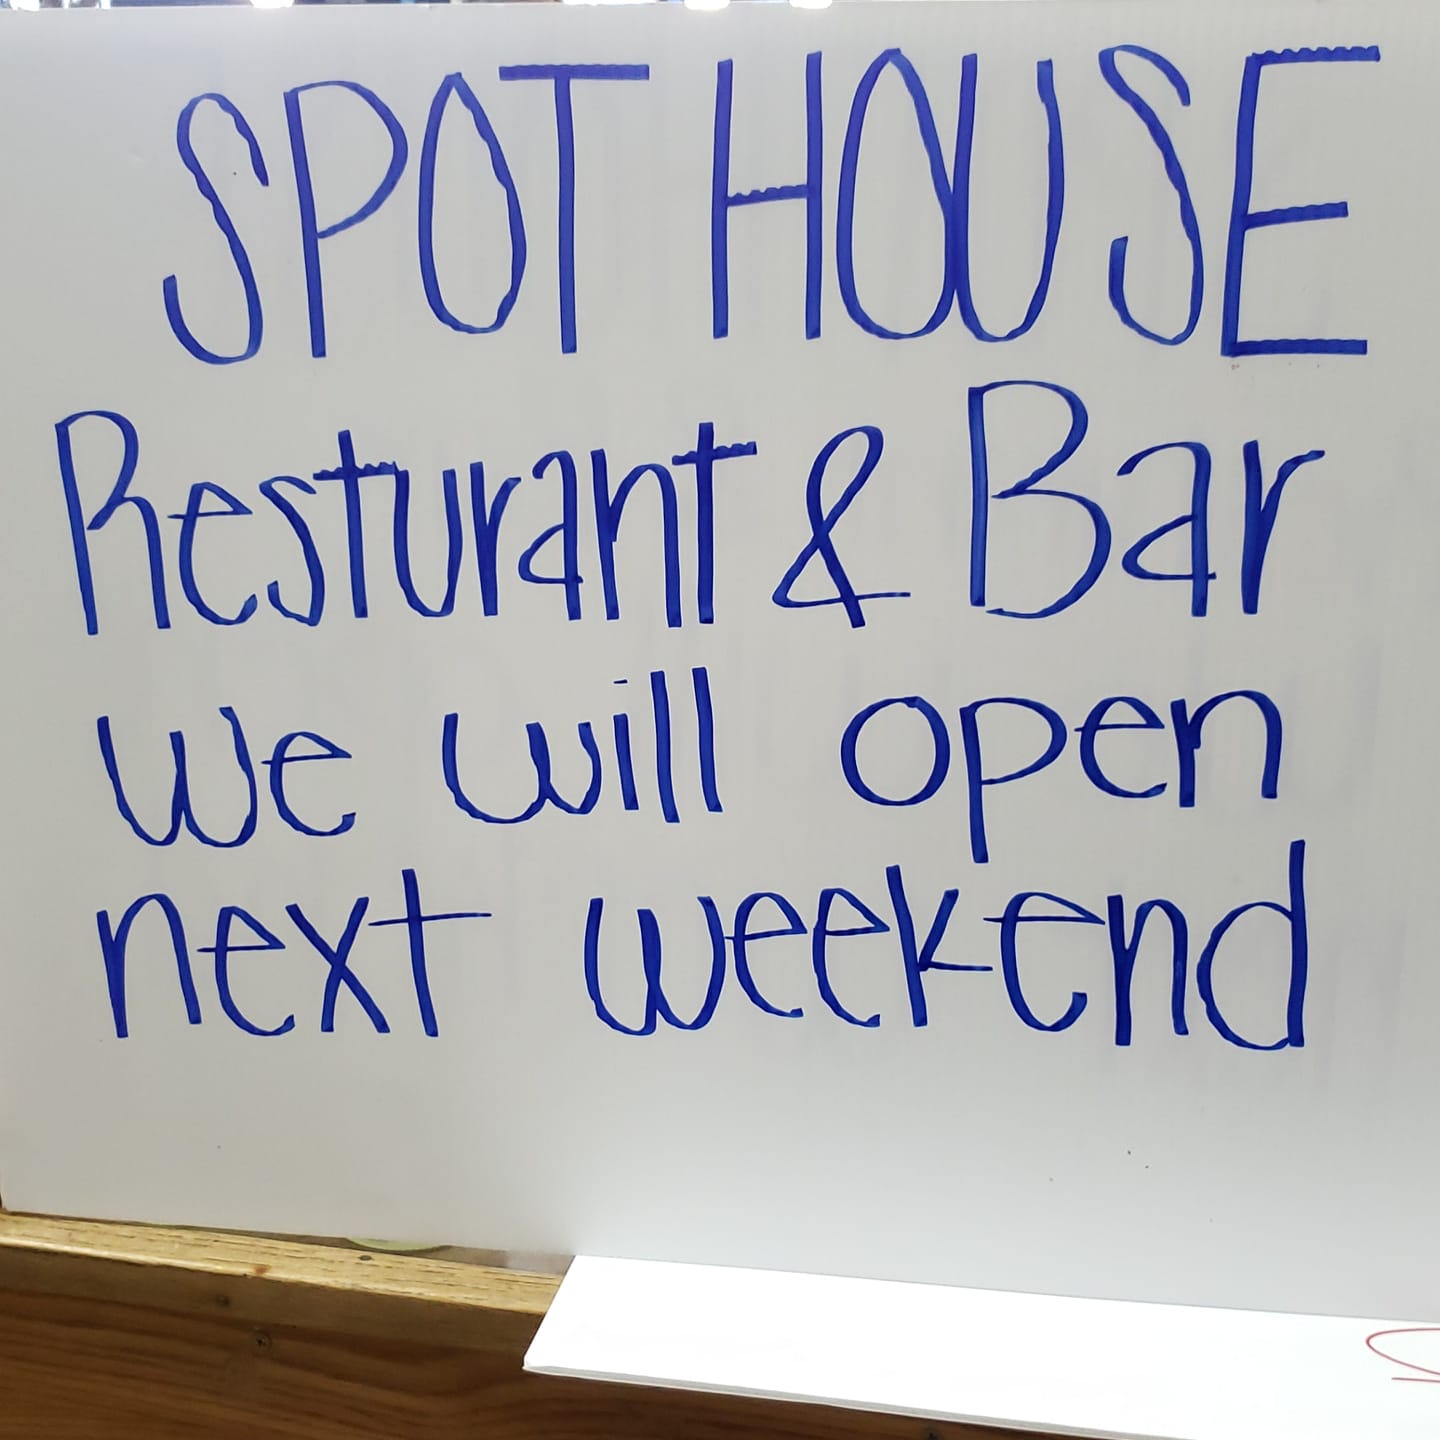 SPOT HOUSE
Resturant & Bar
we will open
next weekend